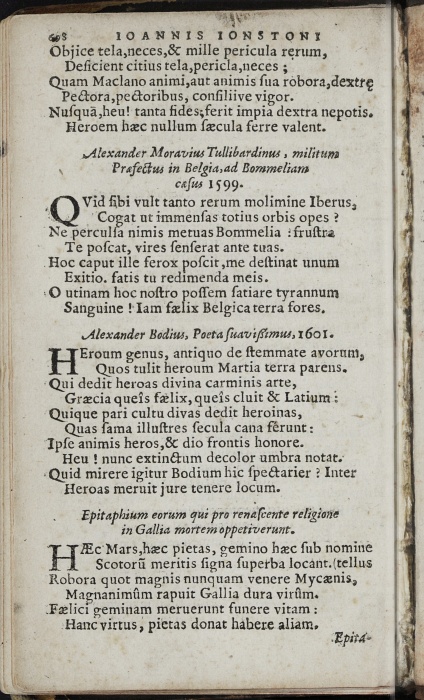 698 IOANNIS IONSTONI
Objice tela,neces,& mille pericula rerum,
Deficient citius tela,pericla,neces ;
Quam Maclano animi,aut animis sua robora,dextrę
Pectora,pectoribus, consiliive vigor.
Nusquã,heu! tanta fides;ferit impia dextra nepotis.
Heroem hæc nullum sæcula ferre valent.
Alexander Moravius Tullibardinus, militum
Præfectus in Belgia,ad Bommeliam
cæsus 1599.
QVid sibi vult tanto rerum molimine Iberus,
Cogat ut immensas totius orbis opes ?
Ne perculsa nimis metuas Bommelia : frustra
Te poscat, vires senserat ante tuas.
Hoc caput ille ferox poscit,me destinat unum
Exitio. fatis tu redimenda meis.
O utinam hoc nostro possem satiare tyrannum
Sanguine ! Iam fælix Belgica terra fores.
Alexander Bodius, Poeta suavißimus,1601.
HEroum genus, antiquo de stemmate avorum,
Quos tulit heroum Martia terra parens.
Qui dedit heroas divina carminis arte,
Græcia queîs fælix,queîs cluit & Latium :
Quique pari cultu divas dedit heroinas,
Quas fama illustres secula cana ferunt:
Ipse animis heros,& dio frontis honore.
Heu ! nunc extinctum decolor umbra notat.
Quid mirere igitur Bodium hic spectarier ? Inter
Heroas meruit jure tenere locum.
Epitaphium eorum qui pro renascente religione
in Gallia mortem oppetiverunt.
HÆc Mars,hæc pietas, gemino hæc sub nomine
Scotorũ meritis signa superba locant. (tellus
Robora quot magnis nunquam venere Mycænis,
Magnanimûm rapuit Gallia dura virûm.
Fælici geminam meruerunt funere vitam :
Hanc virtus, pietas donat habere aliam.
Epita-